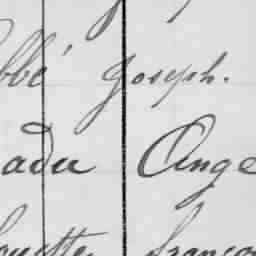 bbé Joseph.
adu Ange
ouette françoi